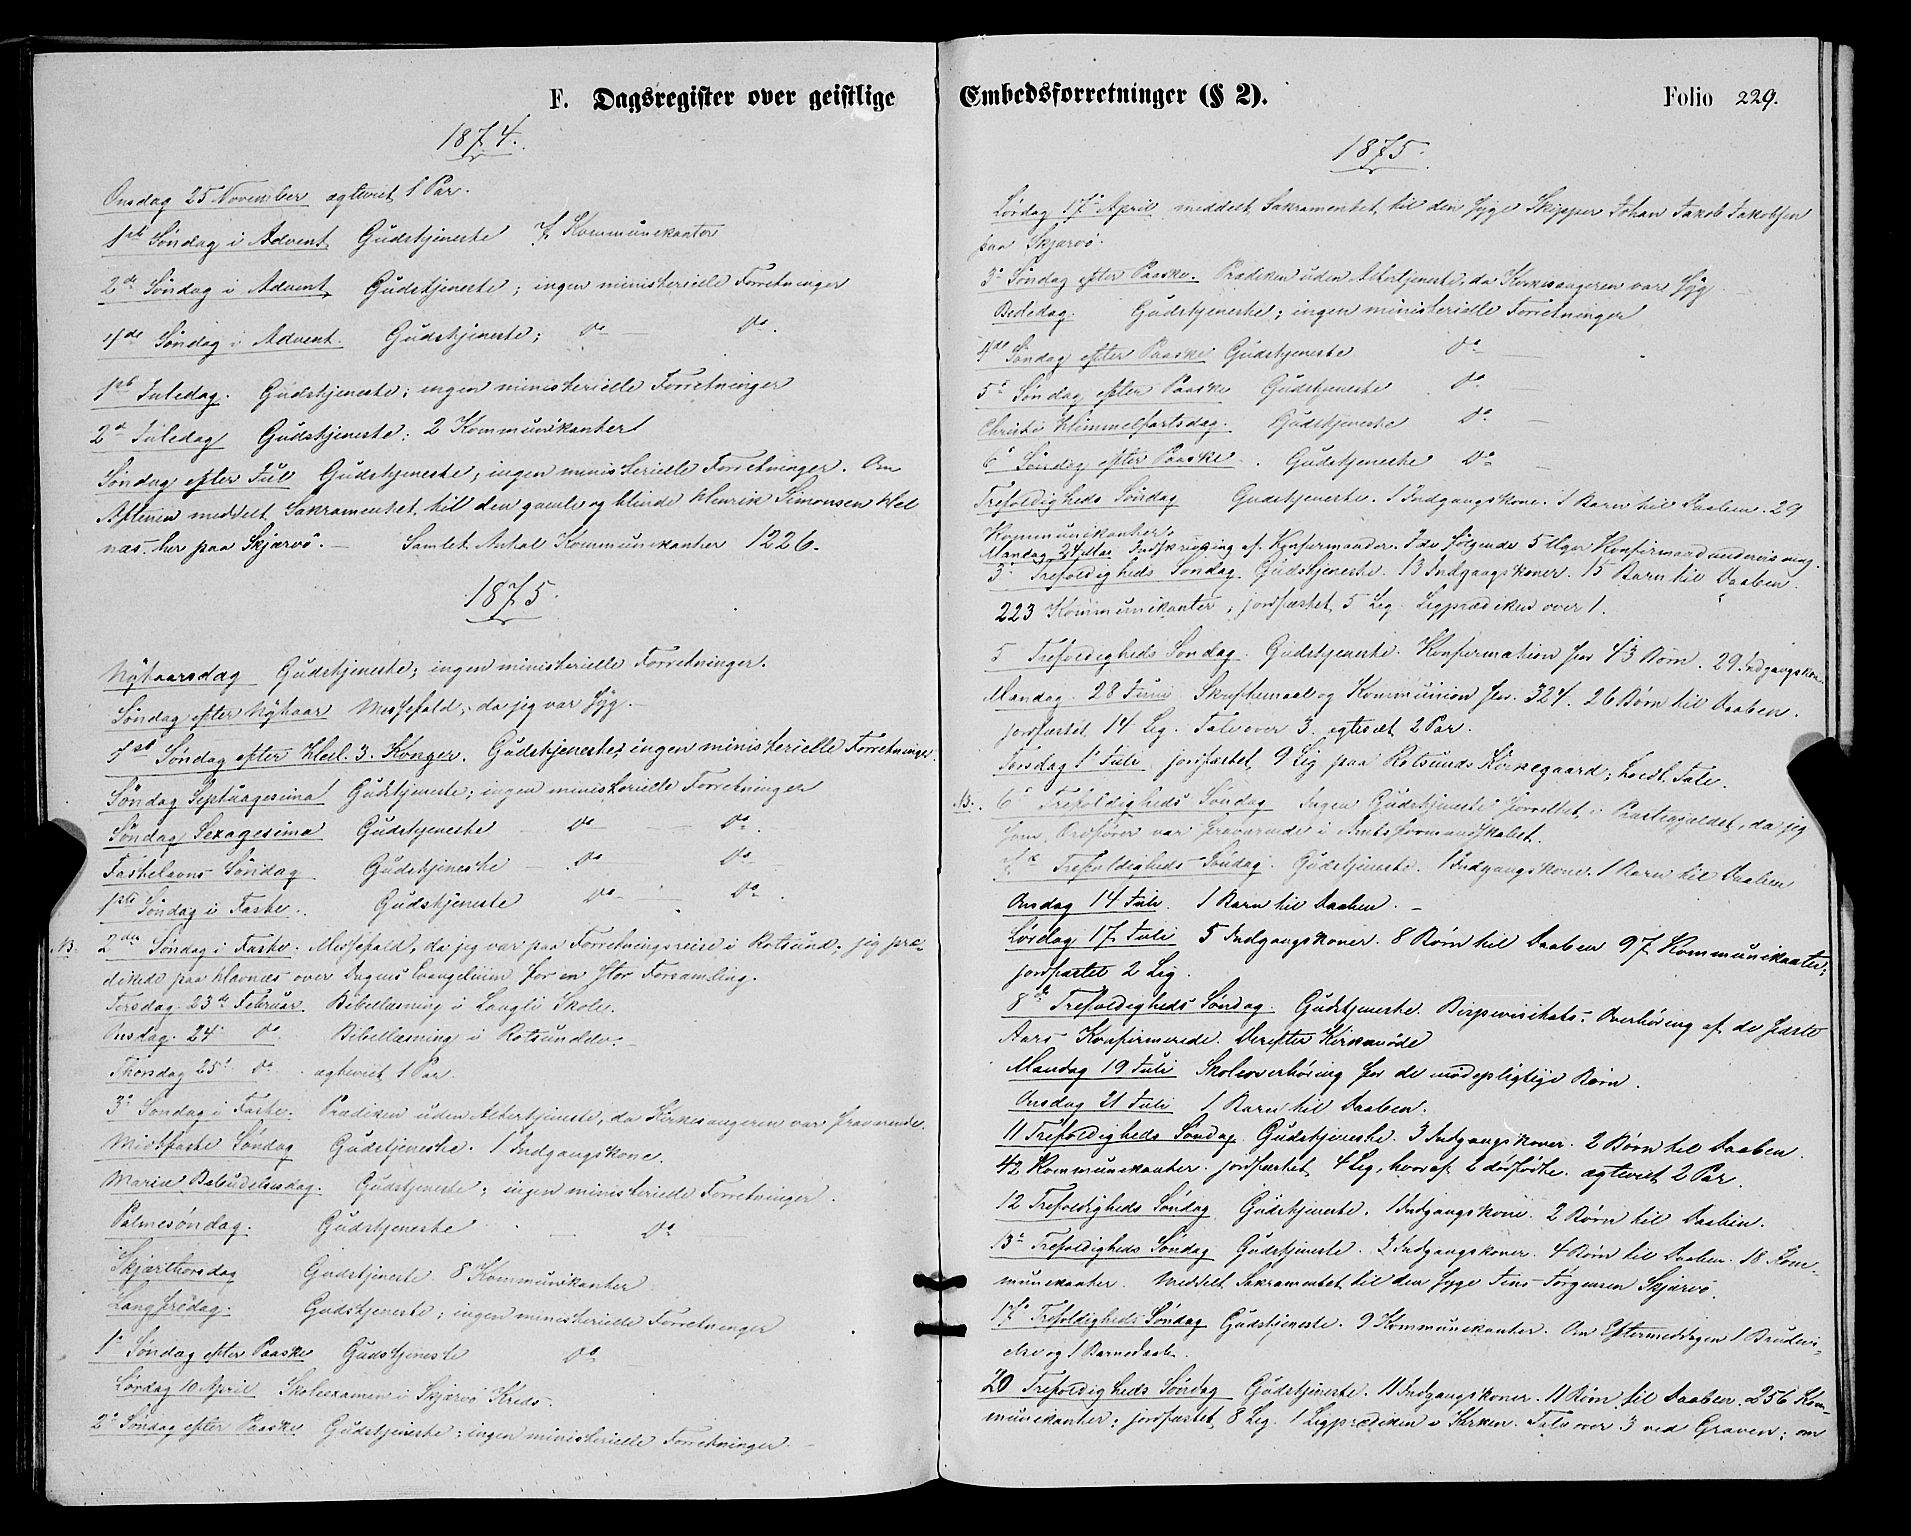 F. Dagsregister over geistlige
1874.
Onsdag 25 November egteviet 1 Par.
1ste Søndag i Advent Gudstjeneste 7 Kommunikanter
2den Søndag i Advent Gudstjeneste; ingen ministerielle Forretninger
4de Søndag i Advent. Gudstjeneste; Do Do.
1ste Juledag. Gudstjeneste; ingen ministerielle Forretninger
2d Juledag Gudstjeneste; 2 Kommunikanter
Søndag efter Jul Gudstjeneste; ingen ministerielle Forretninger. Om
Aftenen meddelt Sakramentet til den gamle og blinde Henrik Simonsen Hel
næs her paa Skjærvö. — Samlet Antal Kommunikanter 1226.
1875.
Nytaarsdag Gudstjeneste; ingen ministerielle Forretninger.
Søndag efter Nytaar Messefald, da jeg var syg.
1ste Søndag efter Hel. 3. Konger. Gudstjeneste; ingen ministerielle Forretninger.
Søndag Septuagesima Gudstjeneste; ingen ministerielle Forretninger
Søndag Sexagesima Gudstjeneste — Do — Do.
Fastelavns Søndag Gudstjeneste — Do Do —
1ste Søndag i Faste. Gudstjeneste Do — Do.
NB. 2den Søndag i Faste. Messefald, da jeg var paa Forretningsreise i Rotsund; jeg præ-
dikede paa Havnæs over Dagens Evangelium for en stor Forsamling.
Tirsdag 23de Februar. Bibellæsning i Langli Skole.
Onsdag 24 Do. Bibellæsning i Rotsundelv.
Thorsdag 25 Do. egteviet 1 Par.
3d Søndag i Faste. Prædiken uden Altertjeneste, da Kirkesangeren var fraværende.
Midtfaste Søndag Gudstjeneste. 1 Indgangskone.
Mariæ Bebudelsesdag. Gudstjeneste; ingen ministerielle Forretninger.
Palmesøndag. Gudstjeneste — Do —
Skjærthorsdag Gudstjeneste. 8 Kommunikanter
Langfredag. Gudstjeneste; ingen ministerielle Forretninger
1 Søndag efter Paaske Gudstjeneste Do
Lørdag 10 April Skoleexamen i Skjærvö Kreds.
2d Søndag efter Paaske Gudstjeneste; ingen ministerielle Forretninger. —
Embedsforretninger (§ 2). Folio 229.
1875.
Lørdag 17 April meddelt Sakramentet til den syge Skipper Johan Jakob Jakobsen
paa Skjærvö.
3d Søndag efter Paaske. Prædiken uden Altertjeneste, da Kirkesangeren var syg. —
Bededag. Gudstjeneste; ingen ministerielle Forretninger
4de Søndag efter Paaske Gudstjeneste Do —
5 Søndag efter Paaske Gudstjeneste Do —
Christi Himmelfartsdag. Gudstjeneste Do —
6 Søndag efter Paaske. Gudstjeneste Do —
Trefoldigheds Søndag Gudstjeneste. 1 Indgangskone. 1 Barn til Daaben. 29
Kommunikanter.
Mandag 24 Mai Indskrivning af Konfirmander. I de følgende 5 Uger Konfirmandundervisning.
3 Trefoldigheds Søndag. Gudstjeneste. 13 Indgangskoner. 15 Barn til Daaben.
223 Kommunikanter, jordfæstet 5 Lig. Ligprædiken over 1.
5 Trefoldigheds Søndag. Gudstjeneste. Konfirmation for 43 Børn. 29 Indgangskon.
Mandag 28 Juni Skriftemaal og Kommunion for 324. 26 Børn til Daaben.
jordfæstet 14 Lig. Tale over 3. egteviet 2 Par.
Torsdag 1 Juli jordfæstet 9 Lig paa Rotsunds Kirkegaard; holdt Tale.
NB. 6 Trefoldigheds Søndag Ingen Gudstjeneste forrettet i Præstegjeldet, da jeg
som Ordfører var fraværende i Amtsformandskabet.
7de Trefoldigheds-Søndag. Gudstjeneste. 1 Indgangskone. 1 Barn til Daaben
Onsdag 14 Juli. 1 Barn til Daaben. —
Lørdag 17 Juli 5 Indgangskoner. 8 Børn til Daaben 97 Kommunikanter;
jordfæstet 2 Lig.
8de Trefoldigheds Søndag Gudstjeneste. Bispevisitats. Overhøring af de sidste
Aars Konfirmerede. Derefter Kirkemøde
Mandag 19 Juli Skoleoverhøring for de mødepligtige Børn.
Onsdag 21 Juli 1 Barn til Daaben.
11 Trefoldigheds Søndag. Gudstjeneste. 3 Indgangskoner. 2 Børn til Daaben.
42 Kommunikanter. jordfæstet 4 Lig, hvoraf 2 dødfødte. egteviet 2 Par.
12 Trefoldigheds Søndag Gudstjeneste. 1 Indgangskone. 2 Børn til Daaben.
13 Trefoldigheds Søndag Gudstjeneste. 3 Indgangskoner. 4 Børn til Daaben. 18 Kom-
munikanter. Meddelt Sakramentet til den syge Jens Jørgensen Skjærvö.
17 Trefoldigheds Søndag Gudstjeneste. 9 Kommunikanter. Om Eftermiddagen 1 Brudevi-
else og 1 Barnedaab.
20 Trefoldigheds Søndag Gudstjeneste. 11 Indgangskoner. 11 Børn til Daaben. 256 Kom-
munikanter; jordfæstet 8 Lig. 1 Ligprædiken i Kirken. Tale over 3 ved Graven; om